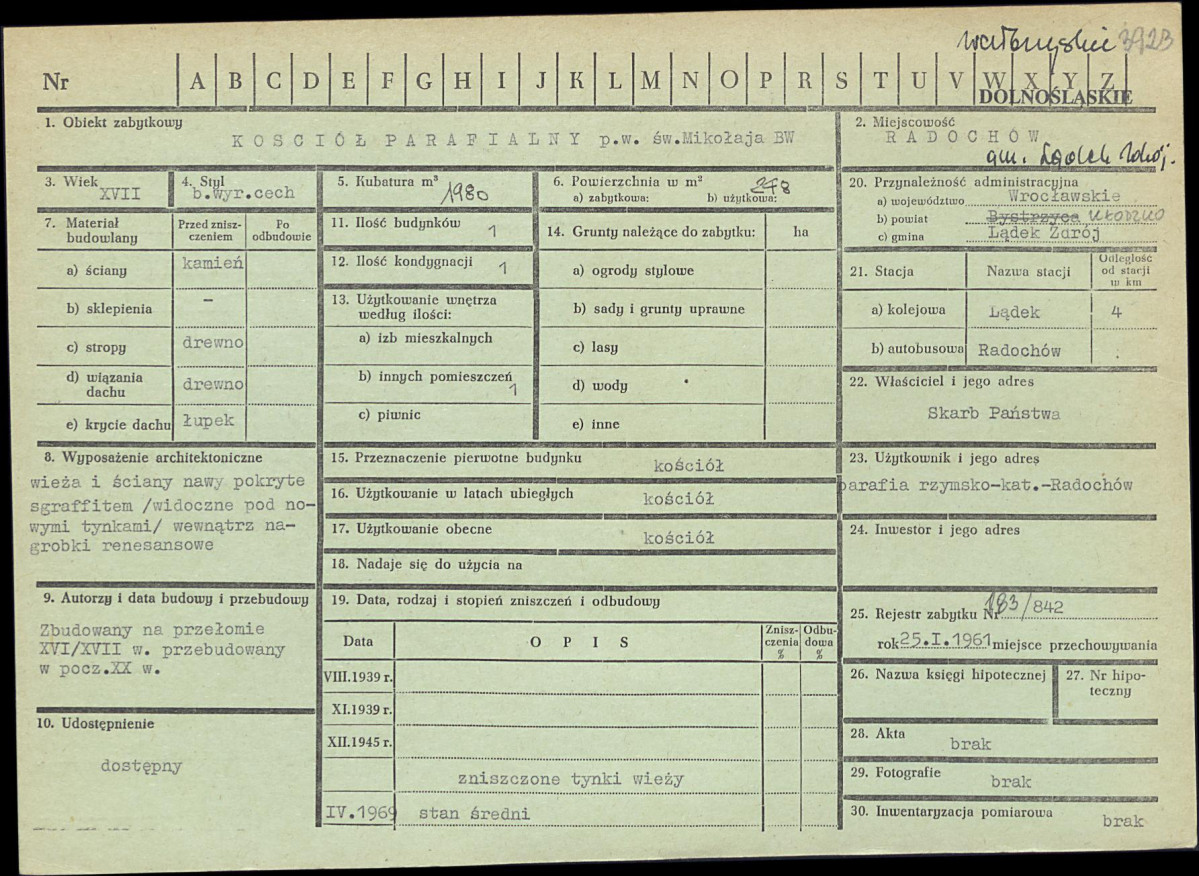 wałbrzyskie 3923
Nr A B C D E F G H I J K L M N O P R S T U V W X Y Z
DOLNOŚLĄSKIE
1. Obiekt zabytkowy
KOSCIÓŁ PARAFIALNY p.w. św.Mikołaja BW
2. Miejscowość
RADOCHÓW
gm. Lądek Zdrój.
3. Wiek
XVII
4. Styl
b.wyr.cech
5. Kubatura m³
1980
6. Powierzchnia w m²
a) zabytkowa: b) użytkowa:
278
20. Przynależność administracyjna
a) województwo Wrocławskie
b) powiat Bystrzyca KŁODZKO
c) gmina Lądek Zdrój
7. Materiał
budowlany
Przed znisz-
czeniem
Po
odbudowie
a) ściany kamień
b) sklepienia –
c) stropy drewno
d) wiązania
dachu drewno
e) krycie dachu łupek
11. Ilość budynków 1
12. Ilość kondygnacji 1
13. Użytkowanie wnętrza
według ilości:
a) izb mieszkalnych
b) innych pomieszczeń
1
c) piwnic
14. Grunty należące do zabytku: ha
a) ogrody stylowe
b) sady i grunty uprawne
c) lasy
d) wody
e) inne
21. Stacja Nazwa stacji
Odległość
od stacji
w km
a) kolejowa Lądek 4
b) autobusowa Radochów .
22. Właściciel i jego adres
Skarb Państwa
8. Wyposażenie architektoniczne
wieża i ściany nawy pokryte
sgraffitem /widoczne pod no-
wymi tynkami/ wewnątrz na-
grobki renesansowe
15. Przeznaczenie pierwotne budynku kościół
16. Użytkowanie w latach ubiegłych kościół
17. Użytkowanie obecne kościół
18. Nadaje się do użycia na
23. Użytkownik i jego adres
parafia rzymsko-kat.-Radochów
24. Inwestor i jego adres
9. Autorzy i data budowy i przebudowy
Zbudowany na przełomie
XVI/XVII w. przebudowany
w pocz.XX w.
10. Udostępnienie
dostępny
19. Data, rodzaj i stopień zniszczeń i odbudowy
Data OPIS
Znisz-
czenia
%
Odbu-
dowa
%
VIII.1939 r.
XI.1939 r.
XII.1945 r.
zniszczone tynki wieży
IV.1969 stan średni
25. Rejestr zabytku Nr 183/842
rok 25.I.1961 miejsce przechowywania
26. Nazwa księgi hipotecznej
27. Nr hipo-
teczny
28. Akta
brak
29. Fotografie
brak
30. Inwentaryzacja pomiarowa
brak